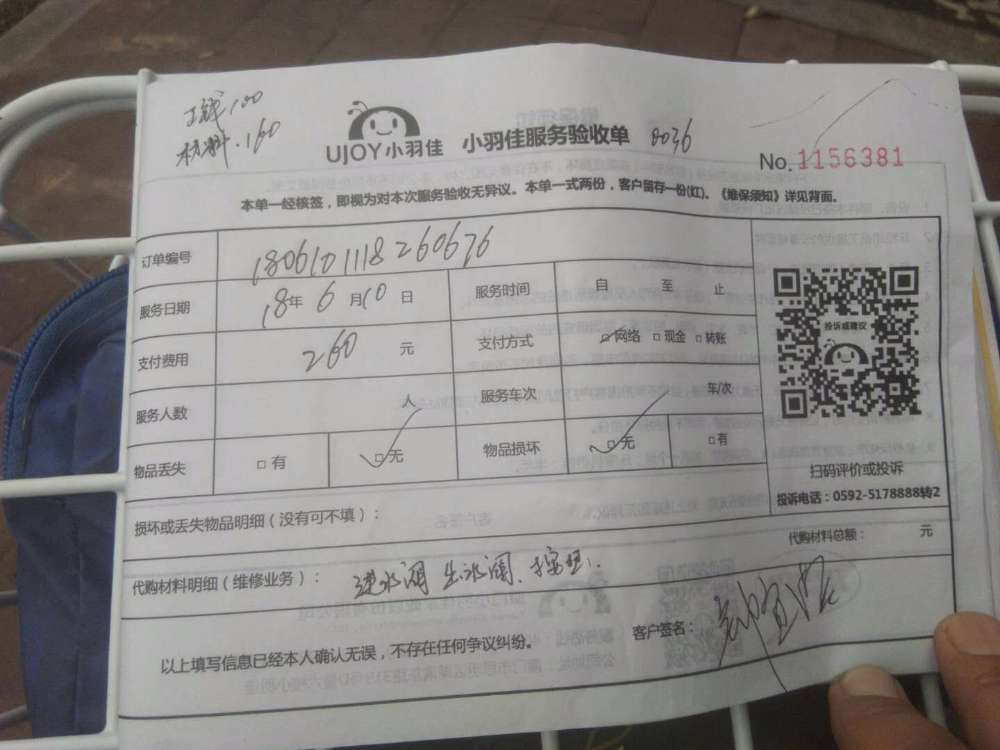 工钱100
材料.160
UJOY小羽佳 小羽佳服务验收单 0036
No.1156381
本单一经核签，即视为对本次服务验收无异议。本单一式两份，客户留存一份(红)。《维保须知》详见背面。
订单编号 1806101118260676
服务日期 18年 6月10日 服务时间 自 至 止
支付费用 260 元 支付方式 □网络 □现金 □转账
投诉或建议
服务人数 人 服务车次 车/次
物品丢失 □有 □无 物品损坏 □无 □有
扫码评价或投诉
投诉电话：0592-5178888转2
损坏或丢失物品明细（没有可不填）：
代购材料总额： 元
代购材料明细（维修业务）： 进水阀 出水阀
客户签名：
以上填写信息已经本人确认无误，不存在任何争议纠纷。